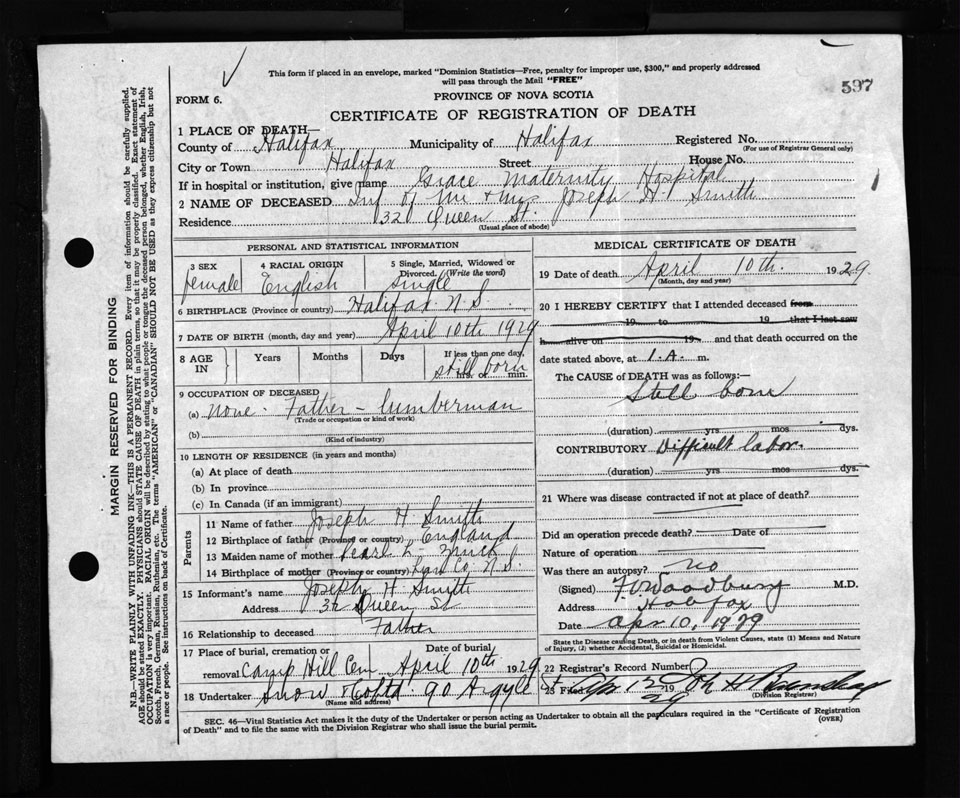 This form if placed in an envelope, marked "Dominion Statistics—Free, penalty for improper use, $300," and properly addressed
will pass through the Mail "FREE"
597
FORM 6.
PROVINCE OF NOVA SCOTIA
CERTIFICATE OF REGISTRATION OF DEATH
1 PLACE OF DEATH—
County of Halifax Municipality of Halifax Registered No.
(For use of Registrar General only)
City or Town Halifax Street House No.
If in hospital or institution, give name Grace Maternity Hospital
2 NAME OF DECEASED Inf of Mr + Mrs Joseph H Smith
Residence 32 Queen St.
(Usual place of abode)
PERSONAL AND STATISTICAL INFORMATION
3 SEX 4 RACIAL ORIGIN 5 Single, Married, Widowed or
Divorced. (Write the word)
female English single
6 BIRTHPLACE (Province or country) Halifax N.S.
7 DATE OF BIRTH (month, day and year) April 10th 1929
8 AGE IN Years Months Days If less than one day,
still born
hrs. or min.
9 OCCUPATION OF DECEASED
(a) none. Father - lumberman
(Trade or occupation or kind of work)
(b)
(Kind of industry)
10 LENGTH OF RESIDENCE (in years and months)
(a) At place of death
(b) In province
(c) In Canada (if an immigrant)
Parents
11 Name of father Joseph H Smith
12 Birthplace of father (Province or country) England
13 Maiden name of mother Pearl L.
14 Birthplace of mother (Province or country) Co. N.S.
15 Informant's name Joseph H Smith
Address 32 Queen St
16 Relationship to deceased Father
17 Place of burial, cremation or Date of burial
removal Camp Hill Cem April 10th 1929
18 Undertaker Snow + Co Ltd 90 Argyle
(Name and address)
MEDICAL CERTIFICATE OF DEATH
19 Date of death April 10th. 1929.
(Month, day and year)
20 I HEREBY CERTIFY that I attended deceased from
19 to 19 that I last saw
h alive on 19 and that death occurred on the
date stated above, at 1.A. m.
The CAUSE of DEATH was as follows:—
Still born
(duration) yrs mos dys.
CONTRIBUTORY Difficult labor.
(duration) yrs mos dys.
21 Where was disease contracted if not at place of death?
Did an operation precede death? Date of
Nature of operation
Was there an autopsy? no
(Signed) F.V. Woodbury M.D.
Address Halifax
Date apr 10, 1929
State the Disease causing Death, or in death from Violent Causes, state (1) Means and Nature
of Injury, (2) whether Accidental, Suicidal or Homicidal.
22 Registrar's Record Number
23 Filed Apr 12 1929
(Division Registrar)
SEC. 46—Vital Statistics Act makes it the duty of the Undertaker or person acting as Undertaker to obtain all the particulars required in the "Certificate of Registration
of Death" and to file the same with the Division Registrar who shall issue the burial permit.
(OVER)
MARGIN RESERVED FOR BINDING
N.B.—WRITE PLAINLY WITH UNFADING INK—THIS IS A PERMANENT RECORD. Every item of information should be carefully supplied.
AGE should be stated EXACTLY. PHYSICIANS should STATE CAUSE OF DEATH in plain terms, so that it may be properly classified. Exact statement of
OCCUPATION is very important. RACIAL ORIGIN will be described by stating to what people or tongue the deceased person belonged, whether English, Irish,
Scotch, French, German, Russian, Ruthenian, etc. The terms "AMERICAN" or "CANADIAN" SHOULD NOT BE USED as they express citizenship but not
a race or people. See instructions on back of Certificate.